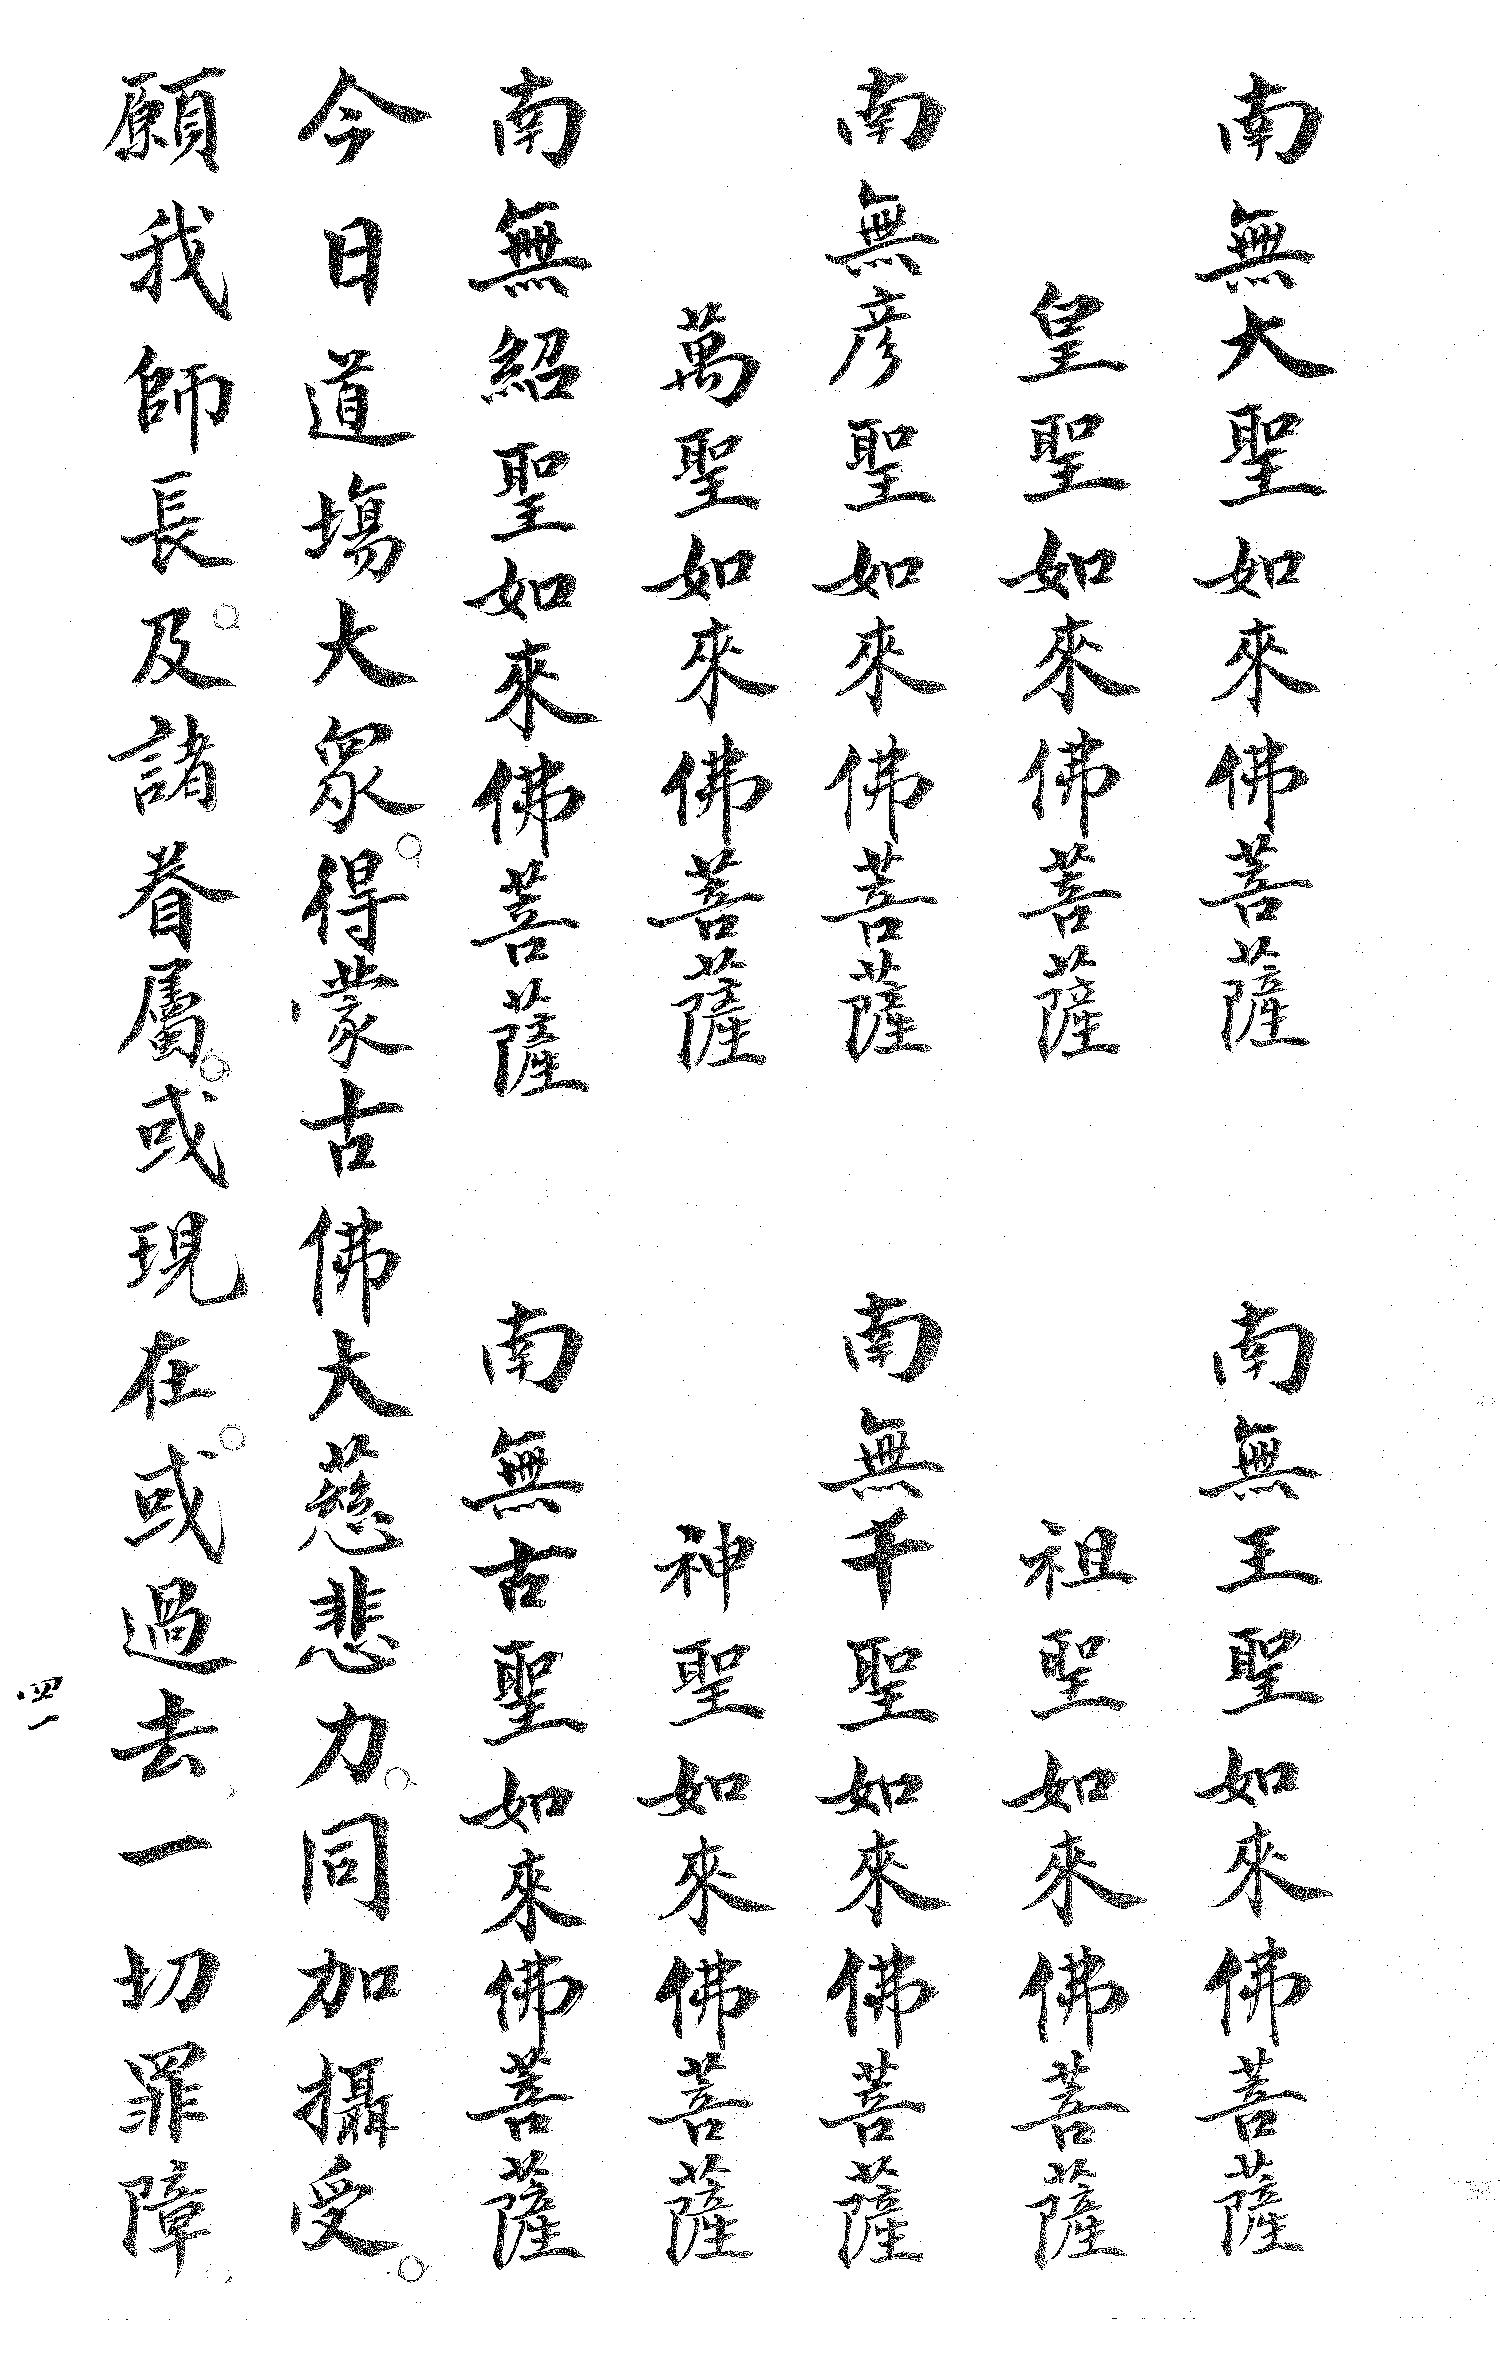 南無大聖如來佛菩薩　南無王聖如來佛菩薩
皇聖如來佛菩薩　祖聖如來佛菩薩
南無彥聖如來佛菩薩　南無千聖如來佛菩薩
萬聖如來佛菩薩　神聖如來佛菩薩
南無紹聖如來佛菩薩　南無古聖如來佛菩薩
今日道塲大眾。得蒙古佛大慈悲力。同加攝受。
願我師長。及諸眷屬。或現在。或過去、一切罪障、
四一